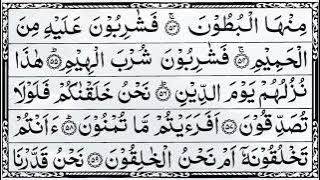 مِنْهَا الْبُطُوْنَ ۚ﴿۵۳﴾ فَشٰرِبُوْنَ عَلَيْهِ مِنَ
الْحَمِيْمِ ۚ﴿۵۴﴾ فَشٰرِبُوْنَ شُرْبَ الْهِيْمِ ؕ﴿۵۵﴾ هٰذَا
نُزُلُهُمْ يَوْمَ الدِّيْنِ ؕ﴿۵۶﴾ نَحْنُ خَلَقْنٰكُمْ فَلَوْلَا
تُصَدِّقُوْنَ ﴿۵۷﴾ اَفَرَءَيْتُمْ مَّا تُمْنُوْنَ ؕ﴿۵۸﴾ ءَاَنْتُمْ
تَخْلُقُوْنَهٗۤ اَمْ نَحْنُ الْخٰلِقُوْنَ ﴿۵۹﴾ نَحْنُ قَدَّرْنَا